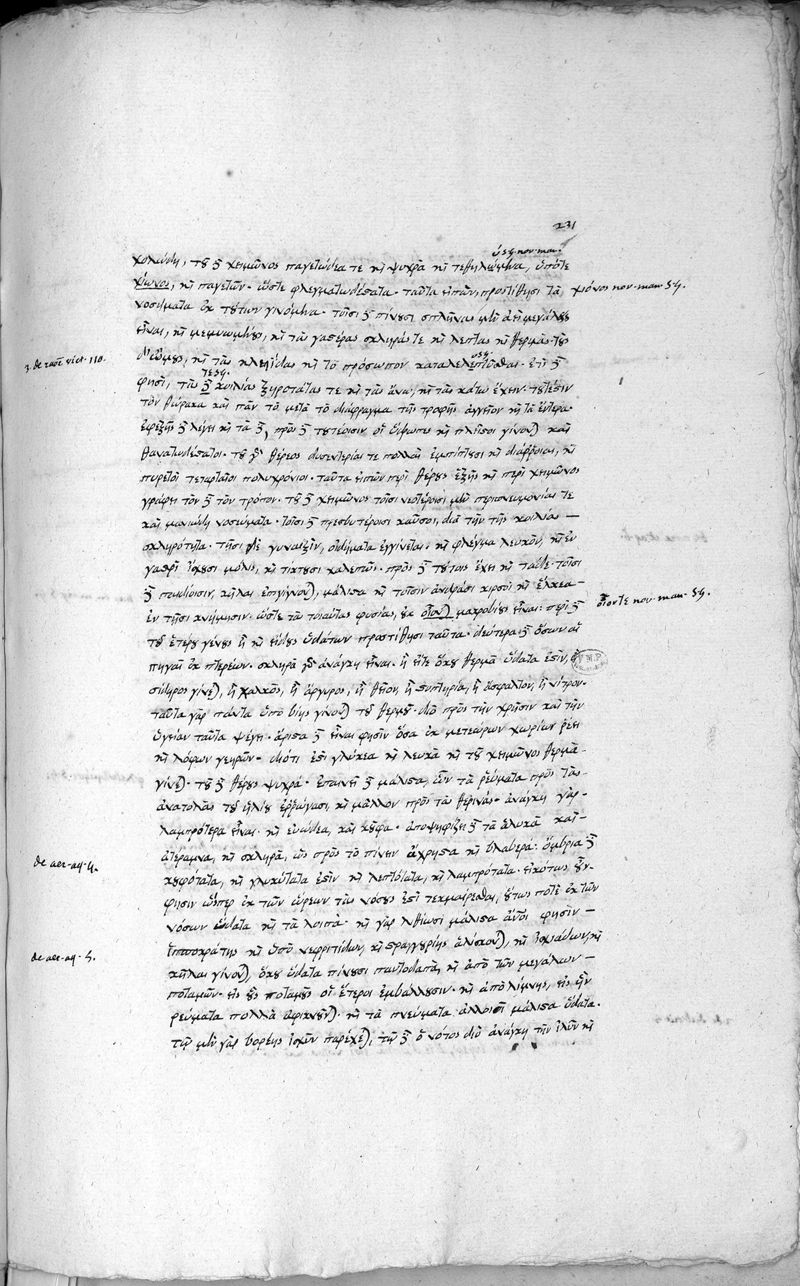 231
χολώδη, τοῦ δὲ χειμῶνος παγετώδεά τε καὶ ψυχρὰ καὶ τεθολωμένα, ὑπό τε
χίωνος, καὶ παγετῶν. ὥστε φλεγματωδέστατα. ταῦτα εἰπὼν, προστίθησι τὰ χιόνος nov. man. 54.
νοσήματα ἐκ τούτων γινόμενα. τοῖσι δὲ πίνουσι σπλῆνας μὲν ἀεὶ μεγάλους
εἶναι, καὶ μεμυωμένους, καὶ τὰς γαστέρας σκληράς τε καὶ λεπτὰς καὶ θερμὰς. τοὺς
δὲ ὤμους, καὶ τὰς κληῖδας καὶ τὸ πρόσωπον καταλελεπτύσθαι. ἔτι δὲ
φησὶ, τὰς δὲ κοιλίας ξηροτάτας τε καὶ τὰς ἄνω, καὶ τὰς κάτω ἔχειν. τουτέστιν
τὸν θώρακα καὶ πᾶν τὸ μετὰ τὸ διάφραγμα τῆς τροφῆς ἀγγεῖον καὶ τὰ ἔντερα.
ἐφεξῆς δὲ λέγει καὶ τὰ δὲ, πρὸς δὲ τουτέοισιν οἱ ὕδρωπες καὶ πλεῖστοι γίνονται καὶ
θανατωδέστατοι. τοῦ γὰρ θέρεος δυσεντερίαι τε πολλαὶ ἐμπίπτουσι καὶ διάρροιαι, καὶ
πυρετοὶ τεταρταῖοι πολυχρόνιοι. ταῦτα εἰπὼν περὶ θέρους ἑξῆς καὶ περὶ χειμῶνος
γράφει τὸν δὲ τὸν τρόπον. τοῦ δὲ χειμῶνος τοῖσι νεοτέροισι μὲν περιπνευμονίαι τε
καὶ μανιώδη νοσεύματα. τοῖσι δὲ πρεσβυτέροισι καῦσοι, διὰ τὴν τῆς κοιλίας
σκληρότητα. τῇσι δὲ γυναιξὶν, οἰδήματα ἐγγίνεται. καὶ φλέγμα λευκὸν, καὶ ἐν
γαστρὶ ἴσχουσι μόλις, καὶ τίκτουσι χαλεπῶς. πρὸς δὲ τούτοις ἔχει καὶ τάδε. τοῖσι
δὲ παιδίοισιν, κῆλαι ἐπιγίγνονται, μάλιστα καὶ τοῖσιν ἀνδράσι κιρσοὶ καὶ ἕλκεα
ἐν τῇσι κνήμῃσιν. ὥστε τὰς τοιαύτας φύσιας, οὐκ οἷον μακροβίους εἶναι: περὶ δὲ οἷόντε nov. man. 54.
τοῦ ἑτέρου γένους ἢ καὶ εἴδους ὑδάτων προστίθησι ταῦτα. δεύτερα δὲ ὅσων αἱ
πηγαὶ ἐκ πετρέων. σκληρὰ γὰρ ἀνάγκη εἶναι. ἢ εἴτε ὅκου θερμὰ ὕδατά ἐστιν, ἢ
σίδηρος γίνεται, ἢ χαλκὸς, ἢ ἄργυρος, ἢ θεῖον, ἢ στυπτηρία, ἢ ἄσφαλτον, ἢ νίτρον.
ταῦτα γὰρ πάντα ὑπὸ βίης γίνονται τοῦ θερμοῦ. διὸ πρὸς τὴν χρῆσιν καὶ τὴν
ὑγείαν ταῦτα ψέγει. ἄριστα δὲ εἶναι φησὶν ὅσα ἐκ μετεώρων χωρίων ῥέει
καὶ λόφων γεηρῶν. διότι ἐστὶ γλυκέα καὶ λευκὰ καὶ τοῦ χειμῶνος θερμὰ
γίνεται. τοῦ δὲ θέρους ψυχρὰ. ἐπαινεῖ δὲ μάλιστα, ὧν τὰ ῥεύματα πρὸς τὰς
ἀνατολὰς τοῦ ἡλίου ἐρρώγασι, καὶ μᾶλλον πρὸς τὰς θερινὰς. ἀνάγκη γὰρ
λαμπρότερα εἶναι. καὶ εὐώδεα, καὶ κοῦφα. ἀποψηφίζει δὲ τὰ ἁλυκὰ καὶ
ἀτέραμνα, καὶ σκληρὰ, ὡς πρὸς τὸ πίνειν ἄχρηστα καὶ βλαβερά: ὄμβρια δὲ
κουφότατα, καὶ γλυκύτατά ἐστιν καὶ λεπτότατα, καὶ λαμπρότατα. εἰκότως οὖν
φησιν ὥσπερ ἐκ τῶν ὡρέων τὰς νόσους ἐστὶ τεκμαίρεσθαι, οὕτως ποτὲ ἐκ τῶν
νόσων ὕδατα καὶ τὰ λοιπὰ. καὶ γὰρ λιθιῶσι μάλιστα ἄνθρωποι φησὶν
Ἱπποκράτης καὶ ὑπὸ νεφριτίδων, καὶ στραγγουρίης ἁλίσκονται, καὶ ἰσχιάδων, καὶ
κῆλαι γίνονται, ὅκου ὕδατα πίνουσι παντοδαπὰ, καὶ ἀπὸ τῶν μεγάλων
ποταμῶν. εἰς οὓς ποταμοὺς οἱ ἕτεροι ἐμβάλλουσιν. καὶ ἀπὸ λίμνης, εἰς ἣν
ῥεύματα πολλὰ ἀφικνοῦνται. καὶ τὰ πνεύματα ἀλλοιοῖ μάλιστα ὕδατα.
τῷ μὲν γὰρ βορέης ἰσχὺν παρέχεται, τῷ δὲ ὁ νότος διὸ ἀνάγκη τὴν ἰλῦν καὶ
de aer. aq. 4.
de aer. aq. 5.